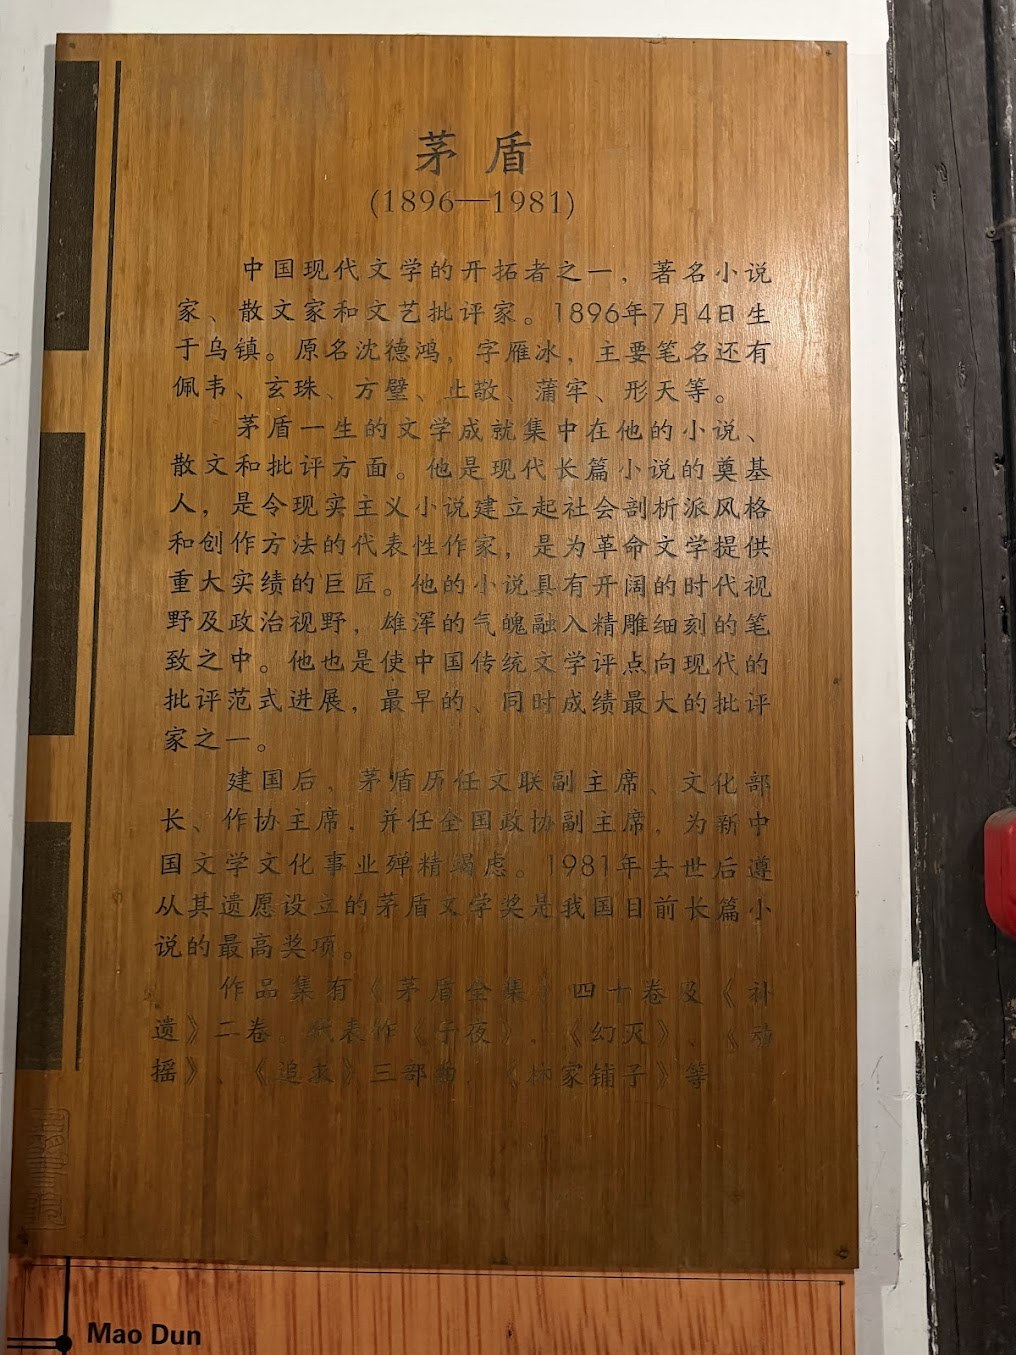 茅盾
(1896—1981)
中国现代文学的开拓者之一，著名小说
家、散文家和文艺批评家。1896年7月4日生
于乌镇。原名沈德鸿，字雁冰，主要笔名还有
佩韦、玄珠、方璧、止敬、蒲牢、形天等。
茅盾一生的文学成就集中在他的小说、
散文和批评方面。他是现代长篇小说的奠基
人，是令现实主义小说建立起社会剖析派风格
和创作方法的代表性作家，是为革命文学提供
重大实绩的巨匠。他的小说具有开阔的时代视
野及政治视野，雄浑的气魄融入精雕细刻的笔
致之中。他也是使中国传统文学评点向现代的
批评范式进展，最早的、同时成绩最大的批评
家之一。
建国后、茅盾历任文联副主席、文化部
长、作协主席，并任全国政协副主席，为新中
国文学文化事业殚精竭虑。1981年去世后遵
从其遗愿设立的茅盾文学奖是我国目前长篇小
说的最高奖项。
作品集有《茅盾全集》四十卷及《补
遗》二卷。代表作《子夜》、《幻灭》、《动
摇》、《追求》三部曲、《林家铺子》等
Mao Dun